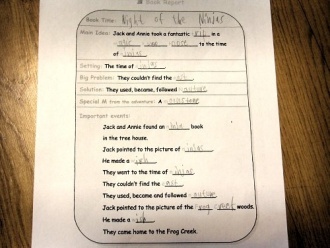 Book Report
Book Title: Night of the Ninjas
Main Idea: Jack and Annie took a fantastic trip in a
magic tree house to the time
of ninjas.
Setting: The time of ninjas.
Big Problem: They couldn't find the
Solution: They used, became, followed nature
Special M from the adventure: A moonstone
Important events:
Jack and Annie found an book
in the tree house.
Jack pointed to the picture of ninjas.
He made a wish.
They went to the time of ninjas.
They couldn't find the
They used, became and followed nature
Jack pointed to the picture of the Frog Creek woods.
He made a wish.
They came home to the Frog Creek.